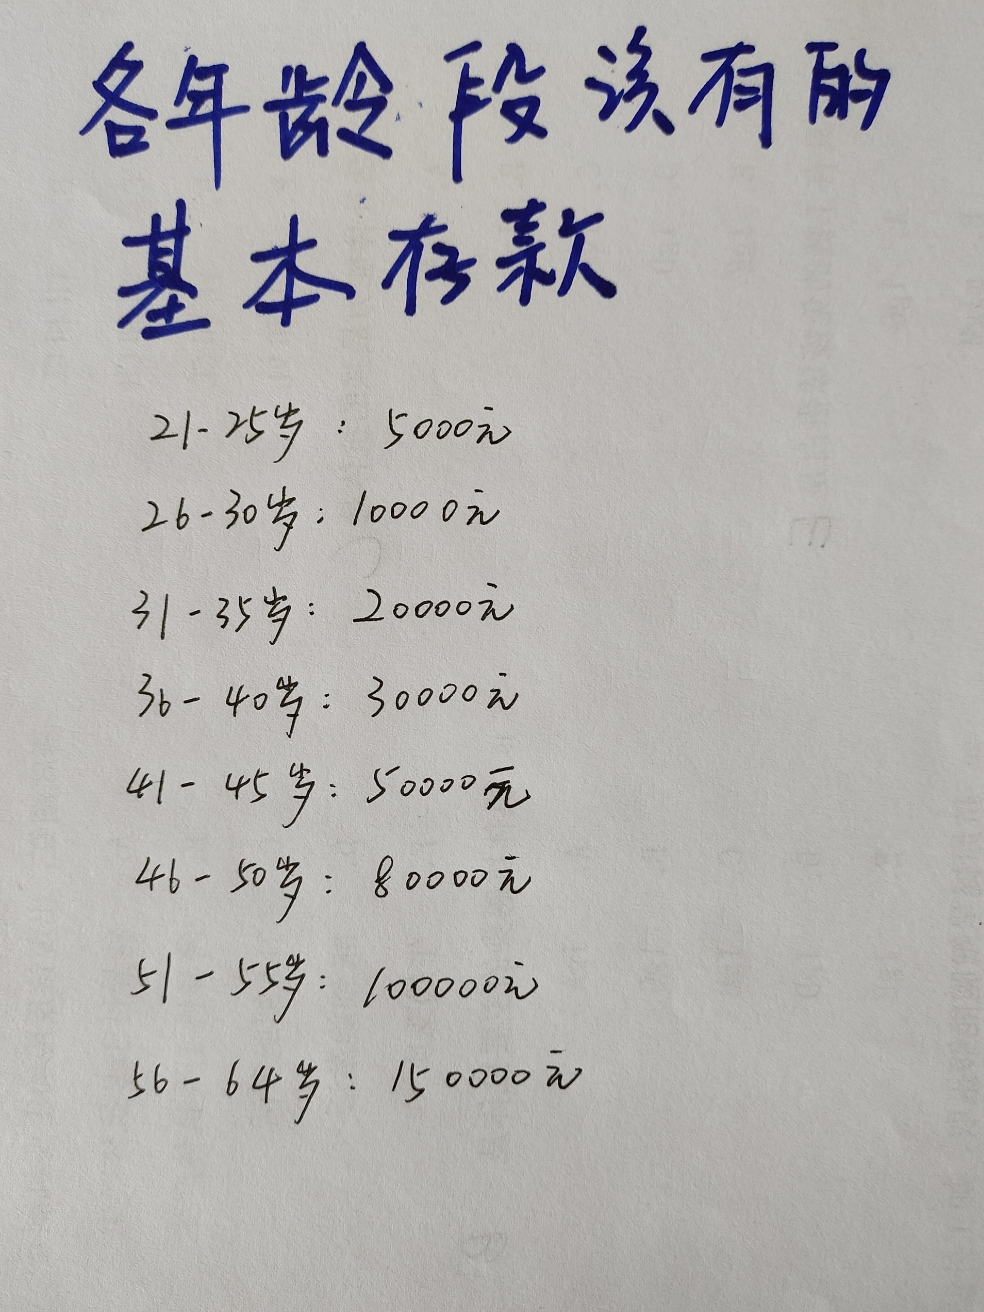 各年龄段该有的
基本存款
21-25岁：5000元
26-30岁：10000元
31-35岁：20000元
36-40岁：30000元
41-45岁：50000元
46-50岁：80000元
51-55岁：100000元
56-64岁：150000元